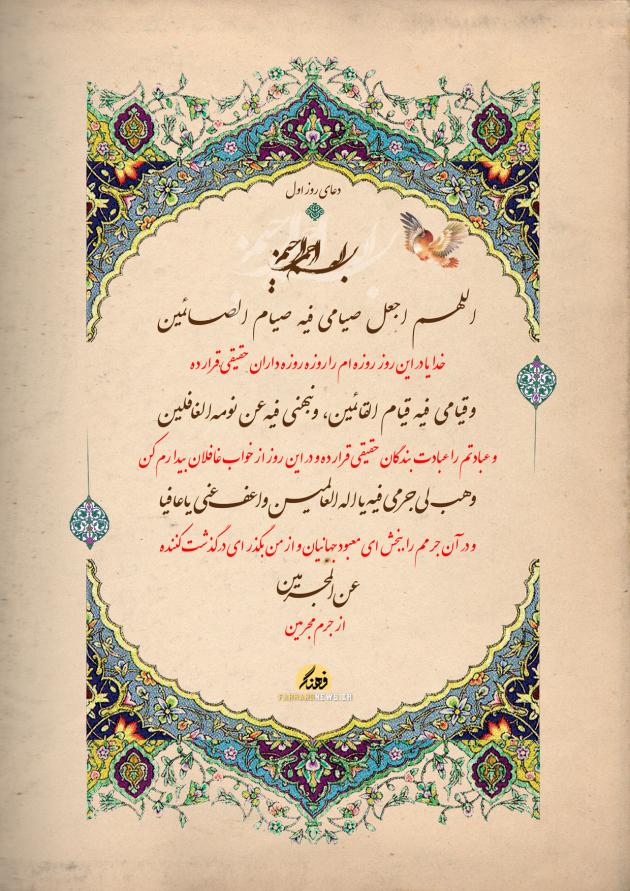 دعای روز اول
بسم الله الرحمن الرحیم
اللهم اجعل صیامی فیه صیام الصائمین
خدایا در این روز روزه ام را روزه روزه داران حقیقی قرار ده
و قیامی فیه قیام القائمین، و نبهنی فیه عن نومه الغافلین
و عبادتم را عبادت بندگان حقیقی قرار ده و در این روز از خواب غافلان بیدارم کن
وهب لی جرمی فیه یا اله العالمین واعف عنی یا عافیا
و در آن جرمم را ببخش ای معبود جهانیان و از من بگذر ای درگذشت کننده
عن المجرمین
از جرم مجرمین
فرهنگ
FARHANGNEWS.IR